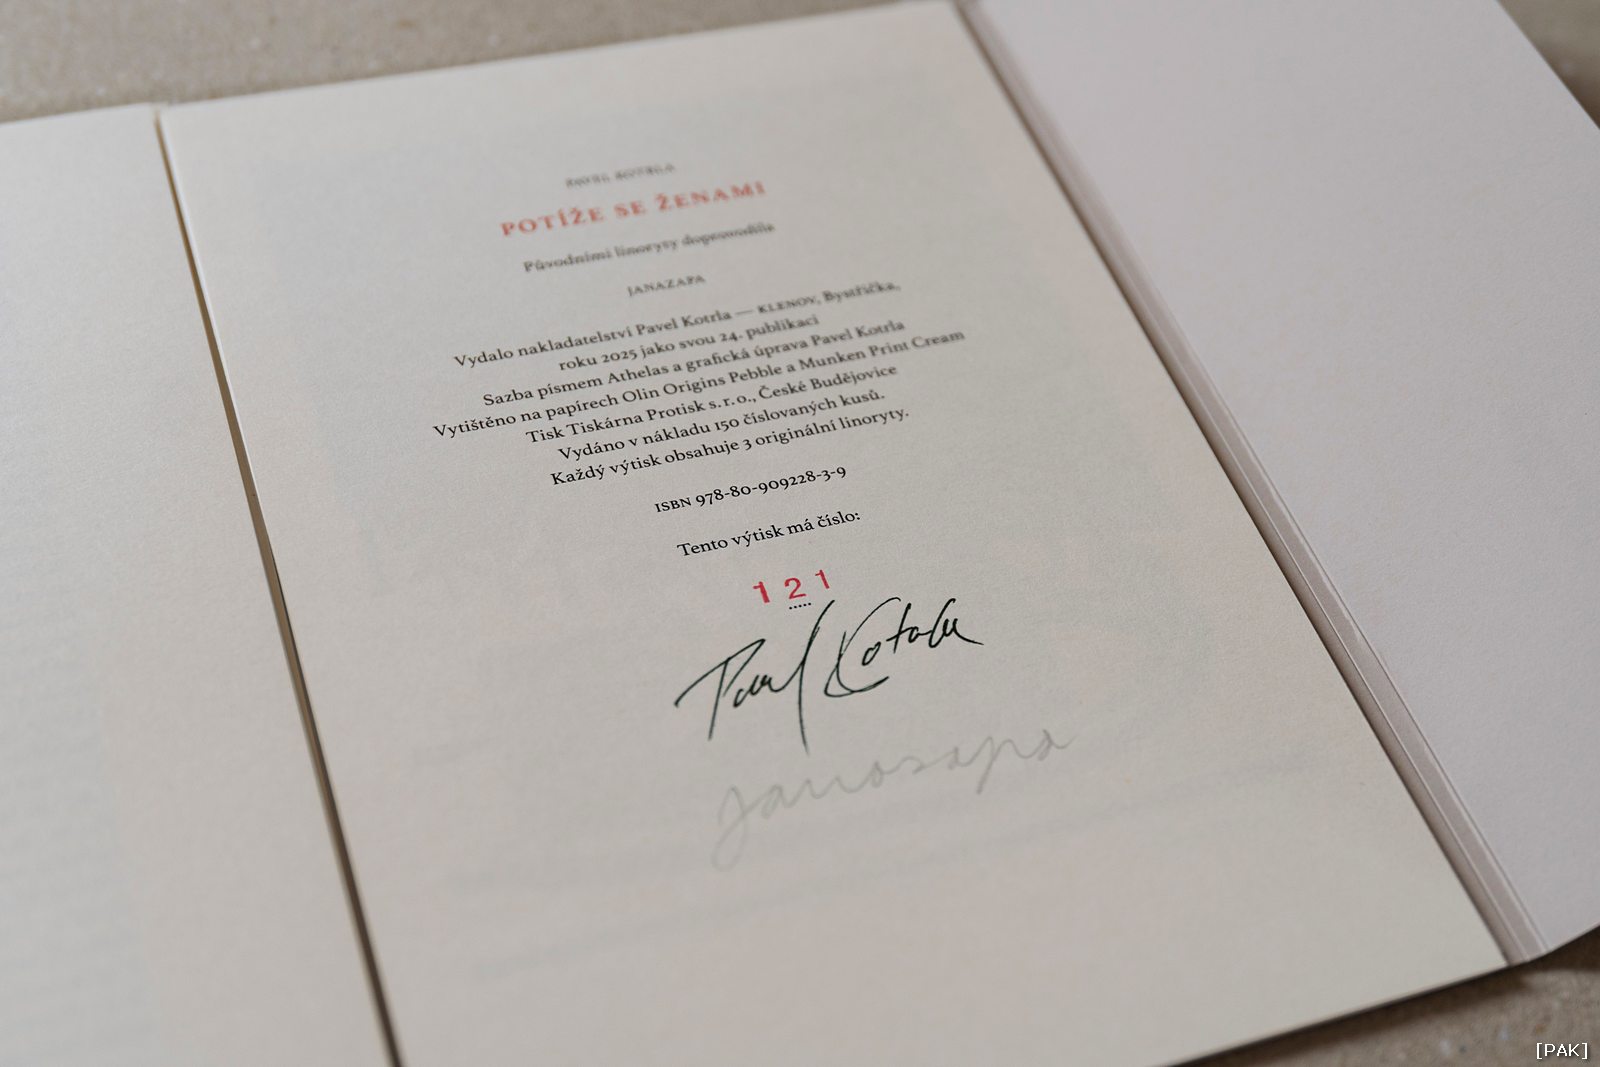 PAVEL KOTRLA
POTÍŽE SE ŽENAMI
Původními linoryty doprovodila
JANAZAPA
Vydalo nakladatelství Pavel Kotrla — KLENOV, Bystřička,
roku 2025 jako svou 24. publikaci
Sazba písmem Athelas a grafická úprava Pavel Kotrla
Vytištěno na papírech Olin Origins Pebble a Munken Print Cream
Tisk Tiskárna Protisk s.r.o., České Budějovice
Vydáno v nákladu 150 číslovaných kusů.
Každý výtisk obsahuje 3 originální linoryty.
ISBN 978-80-909228-3-9
Tento výtisk má číslo:
121
Pavel Kotrla
janazapa
[PAK]